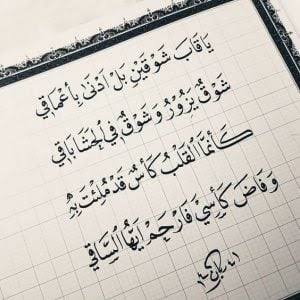 يَا قَابَ شَوْقَيْنِ بَلْ أَدْنَى بِأَعْمَاقِي
شَوْقٌ يَزُورُ وَ شَوْقٌ فِي الْحَشَا بَاقِي
كَأَنَّمَا الْقَلْبُ كَأْسٌ قَدْ مُلِئَتْ بِهِ
وَ فَاضَ كَأْسِي فَارْحَمْ أَيُّهَا السَّاقِي